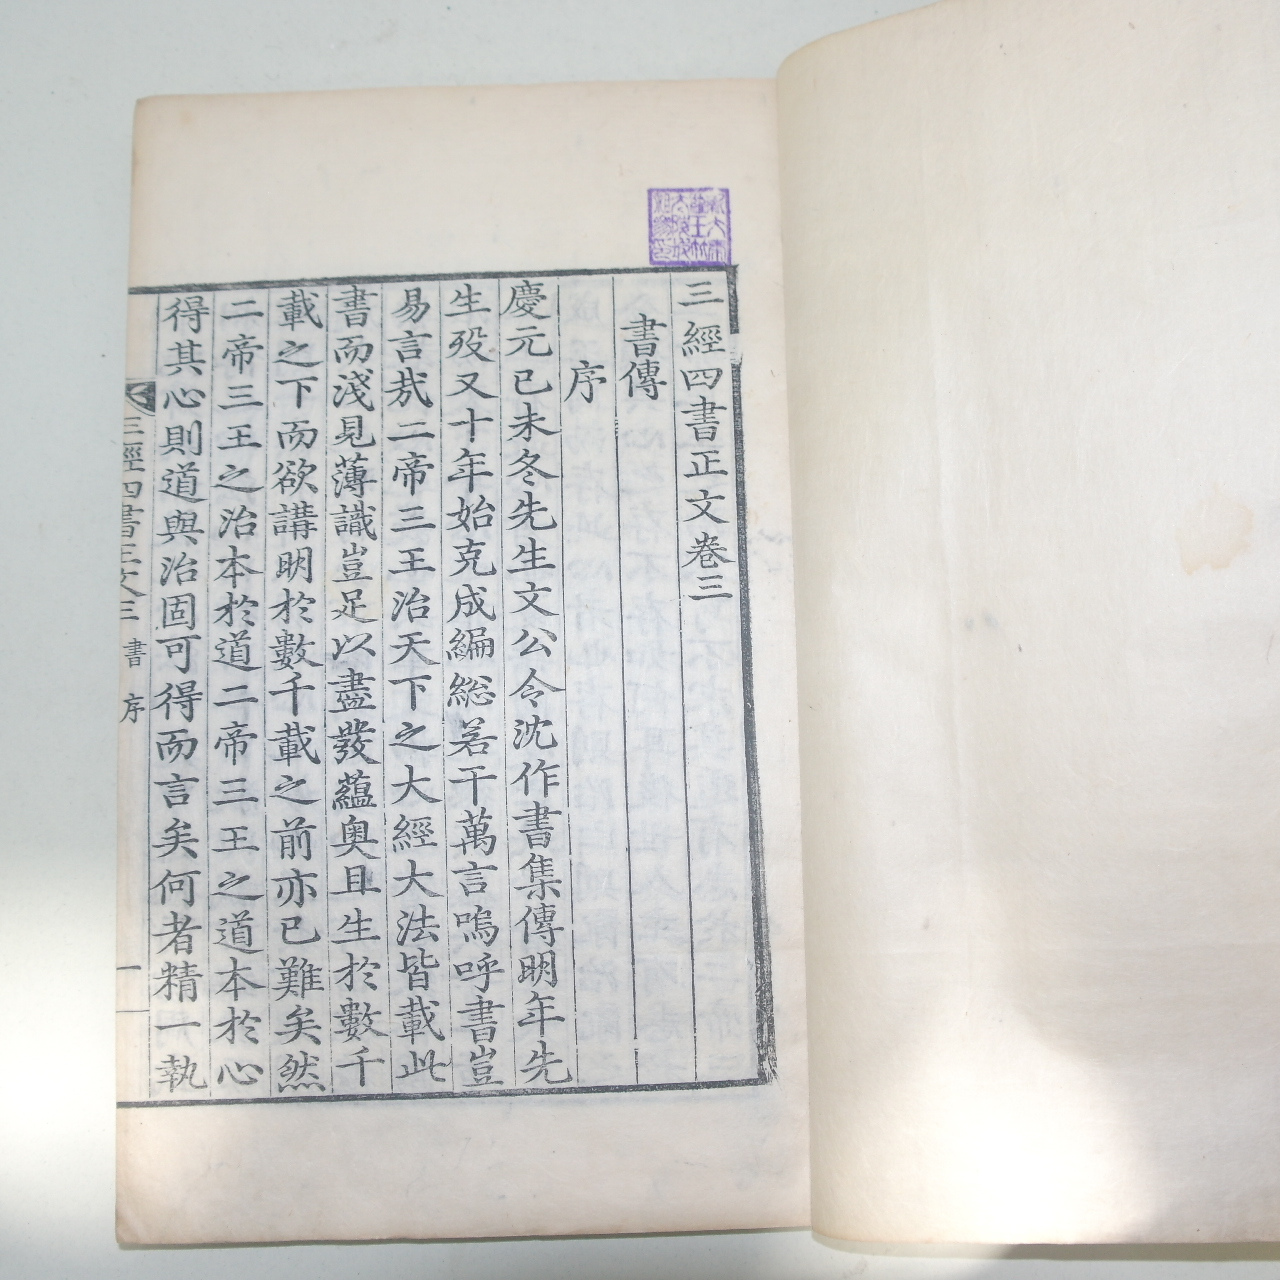 三經四書正文卷三
書傳
序
慶元已未冬先生文公令沈作書集傳明年先
生歿又十年始克成編総若干萬言嗚呼書豈
易言㢤二帝三王治天下之大經大法皆載此
書而淺見薄識豈足以盡發蘊奥且生於數千
載之下而欲講明於數千載之前亦已難矣然
二帝三王之治本於道二帝三王之道本於心
得其心則道與治固可得而言矣何者精一執
三經四書正文三 書 序 一